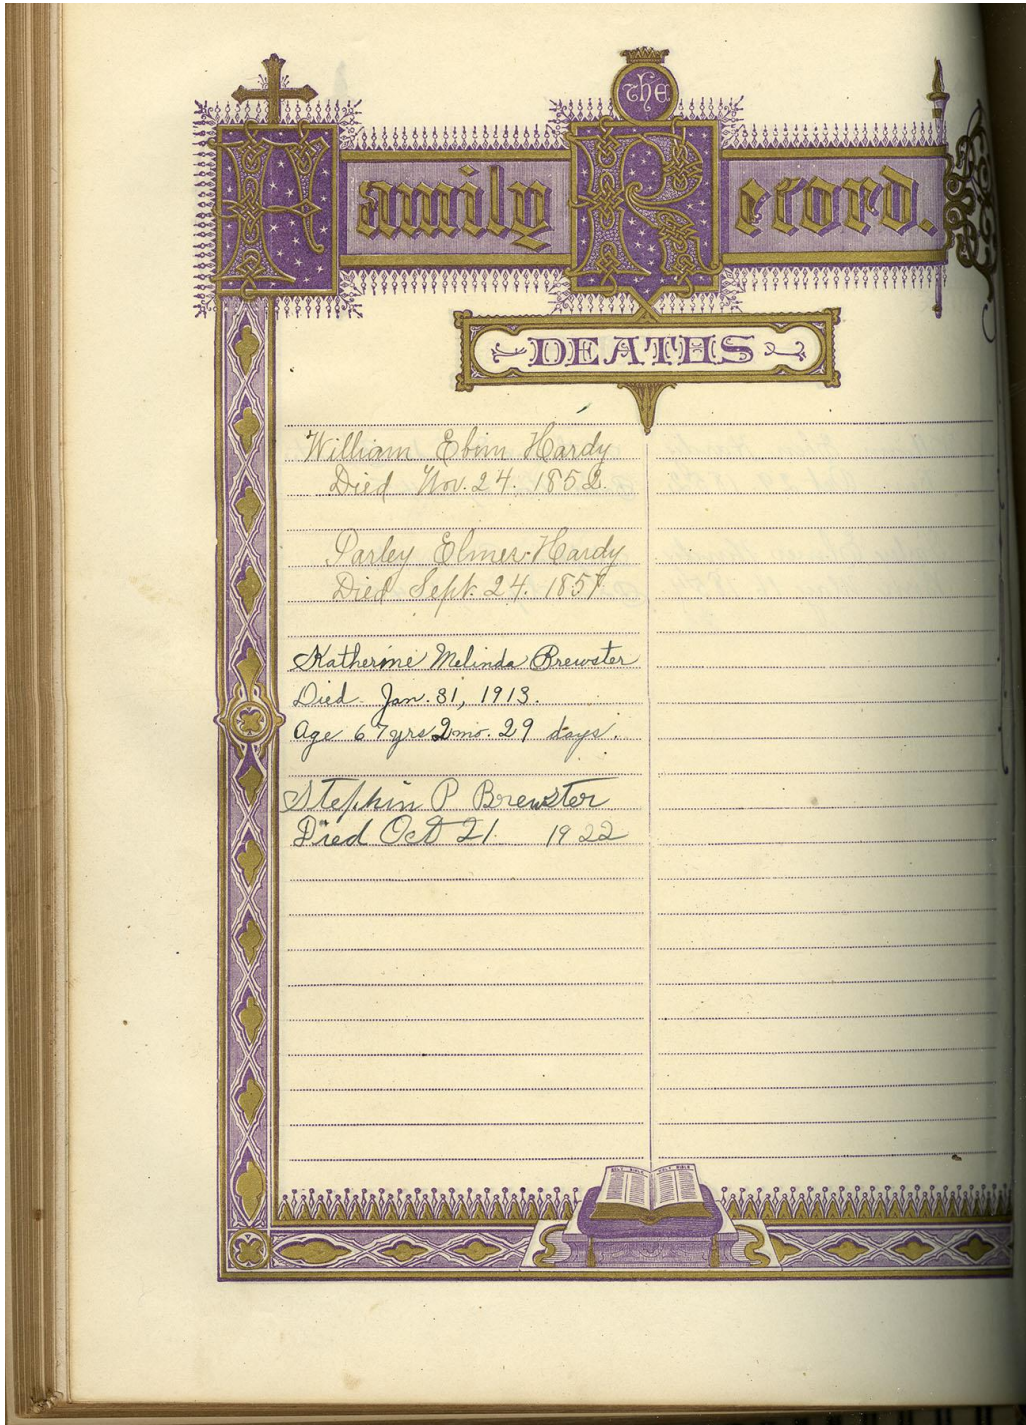 the
Family Record.
DEATHS
William Ebin Hardy
Died Nov. 24. 1852.
Parley Elmer Hardy
Died Sept. 24. 1859
Katherine Melinda Brewster
Died Jan. 31, 1913.
Age 67 yrs 2 mo. 29 days.
Stephin P Brewster
Died Oct 21. 1922
HOLY BIBLE HOLY BIBLE